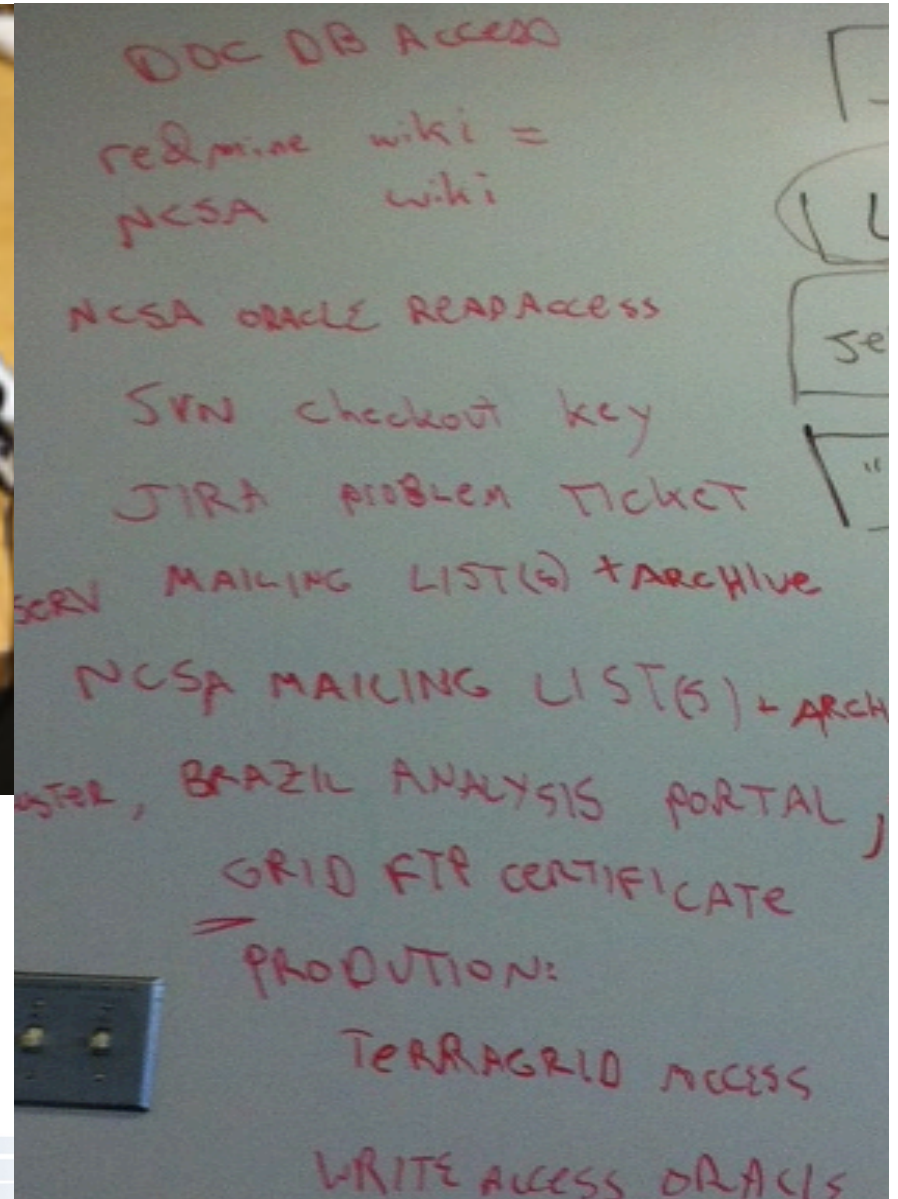 DOC DB ACCESS
redmine wiki =
NCSA wiki
NCSA ORACLE READ ACCESS
SVN checkout key
JIRA PROBLEM TICKET
SERV MAILING LIST(S) + ARCHIVE
NCSA MAILING LIST(S) + ARCH
BRAZIL ANALYSIS PORTAL,
GRID FTP CERTIFICATE
PRODUTION:
TERRAGRID ACCESS
WRITE ACCESS ORACLE